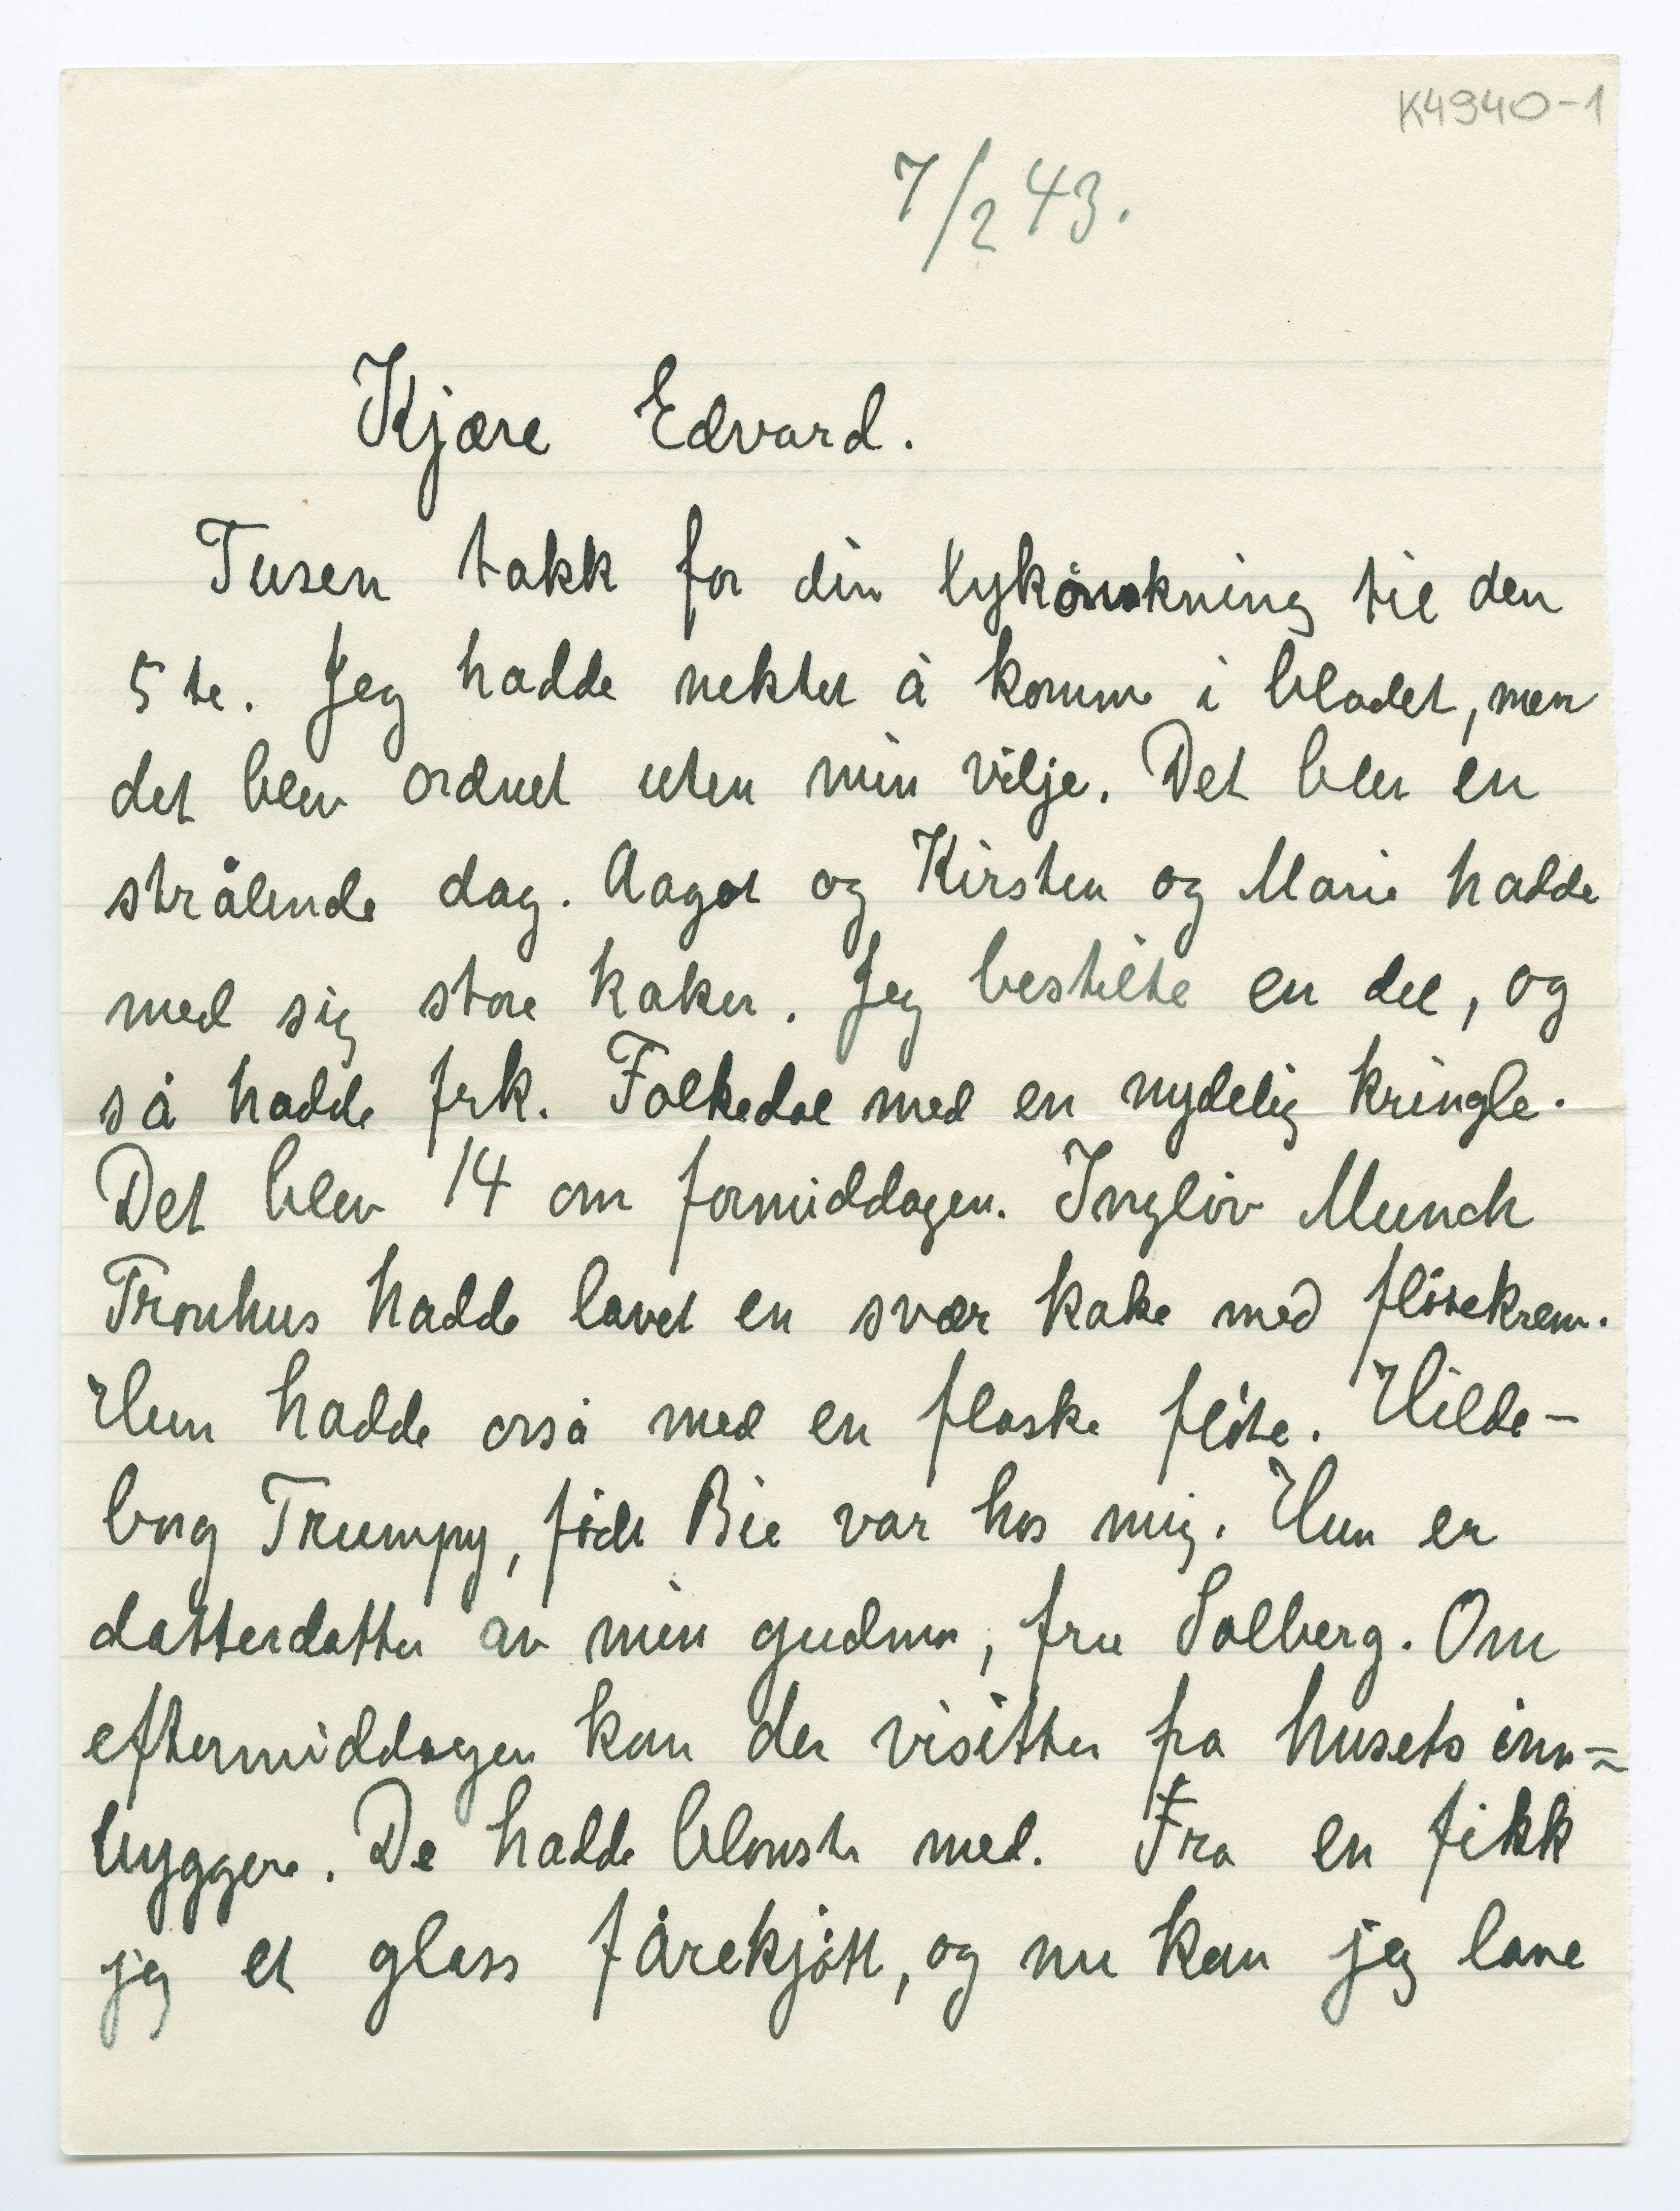 K4940-1
7/2 43.
Kjære Edvard.
Tusen takk for din lykönskning til den
5te. Jeg hadde nektet å komme i bladet, men
det blev ordnet uten min vilje. Det blev en
strålende dag. Aagot og Kirsten og Marie hadde
med sig store kaker. Jeg bestilte en del, og
så hadde frk. Folkedal med en nydelig kringle.
Det blev 14 om formiddagen. Ingliv Munch
Tronhus hadde lavet en svær kake med flötekrem.
Hun hadde orså med en flaske flöte. Hilde-
borg Trumpy, födt Bie var hos mig. Hun er
datterdatter av min gudmor, fru Solberg. Om
eftermiddagen kom der visitter fra husets inn=
byggere. De hadde blomster med. Fra en fikk
jeg et glass fårekjött, og nu kan jeg lave